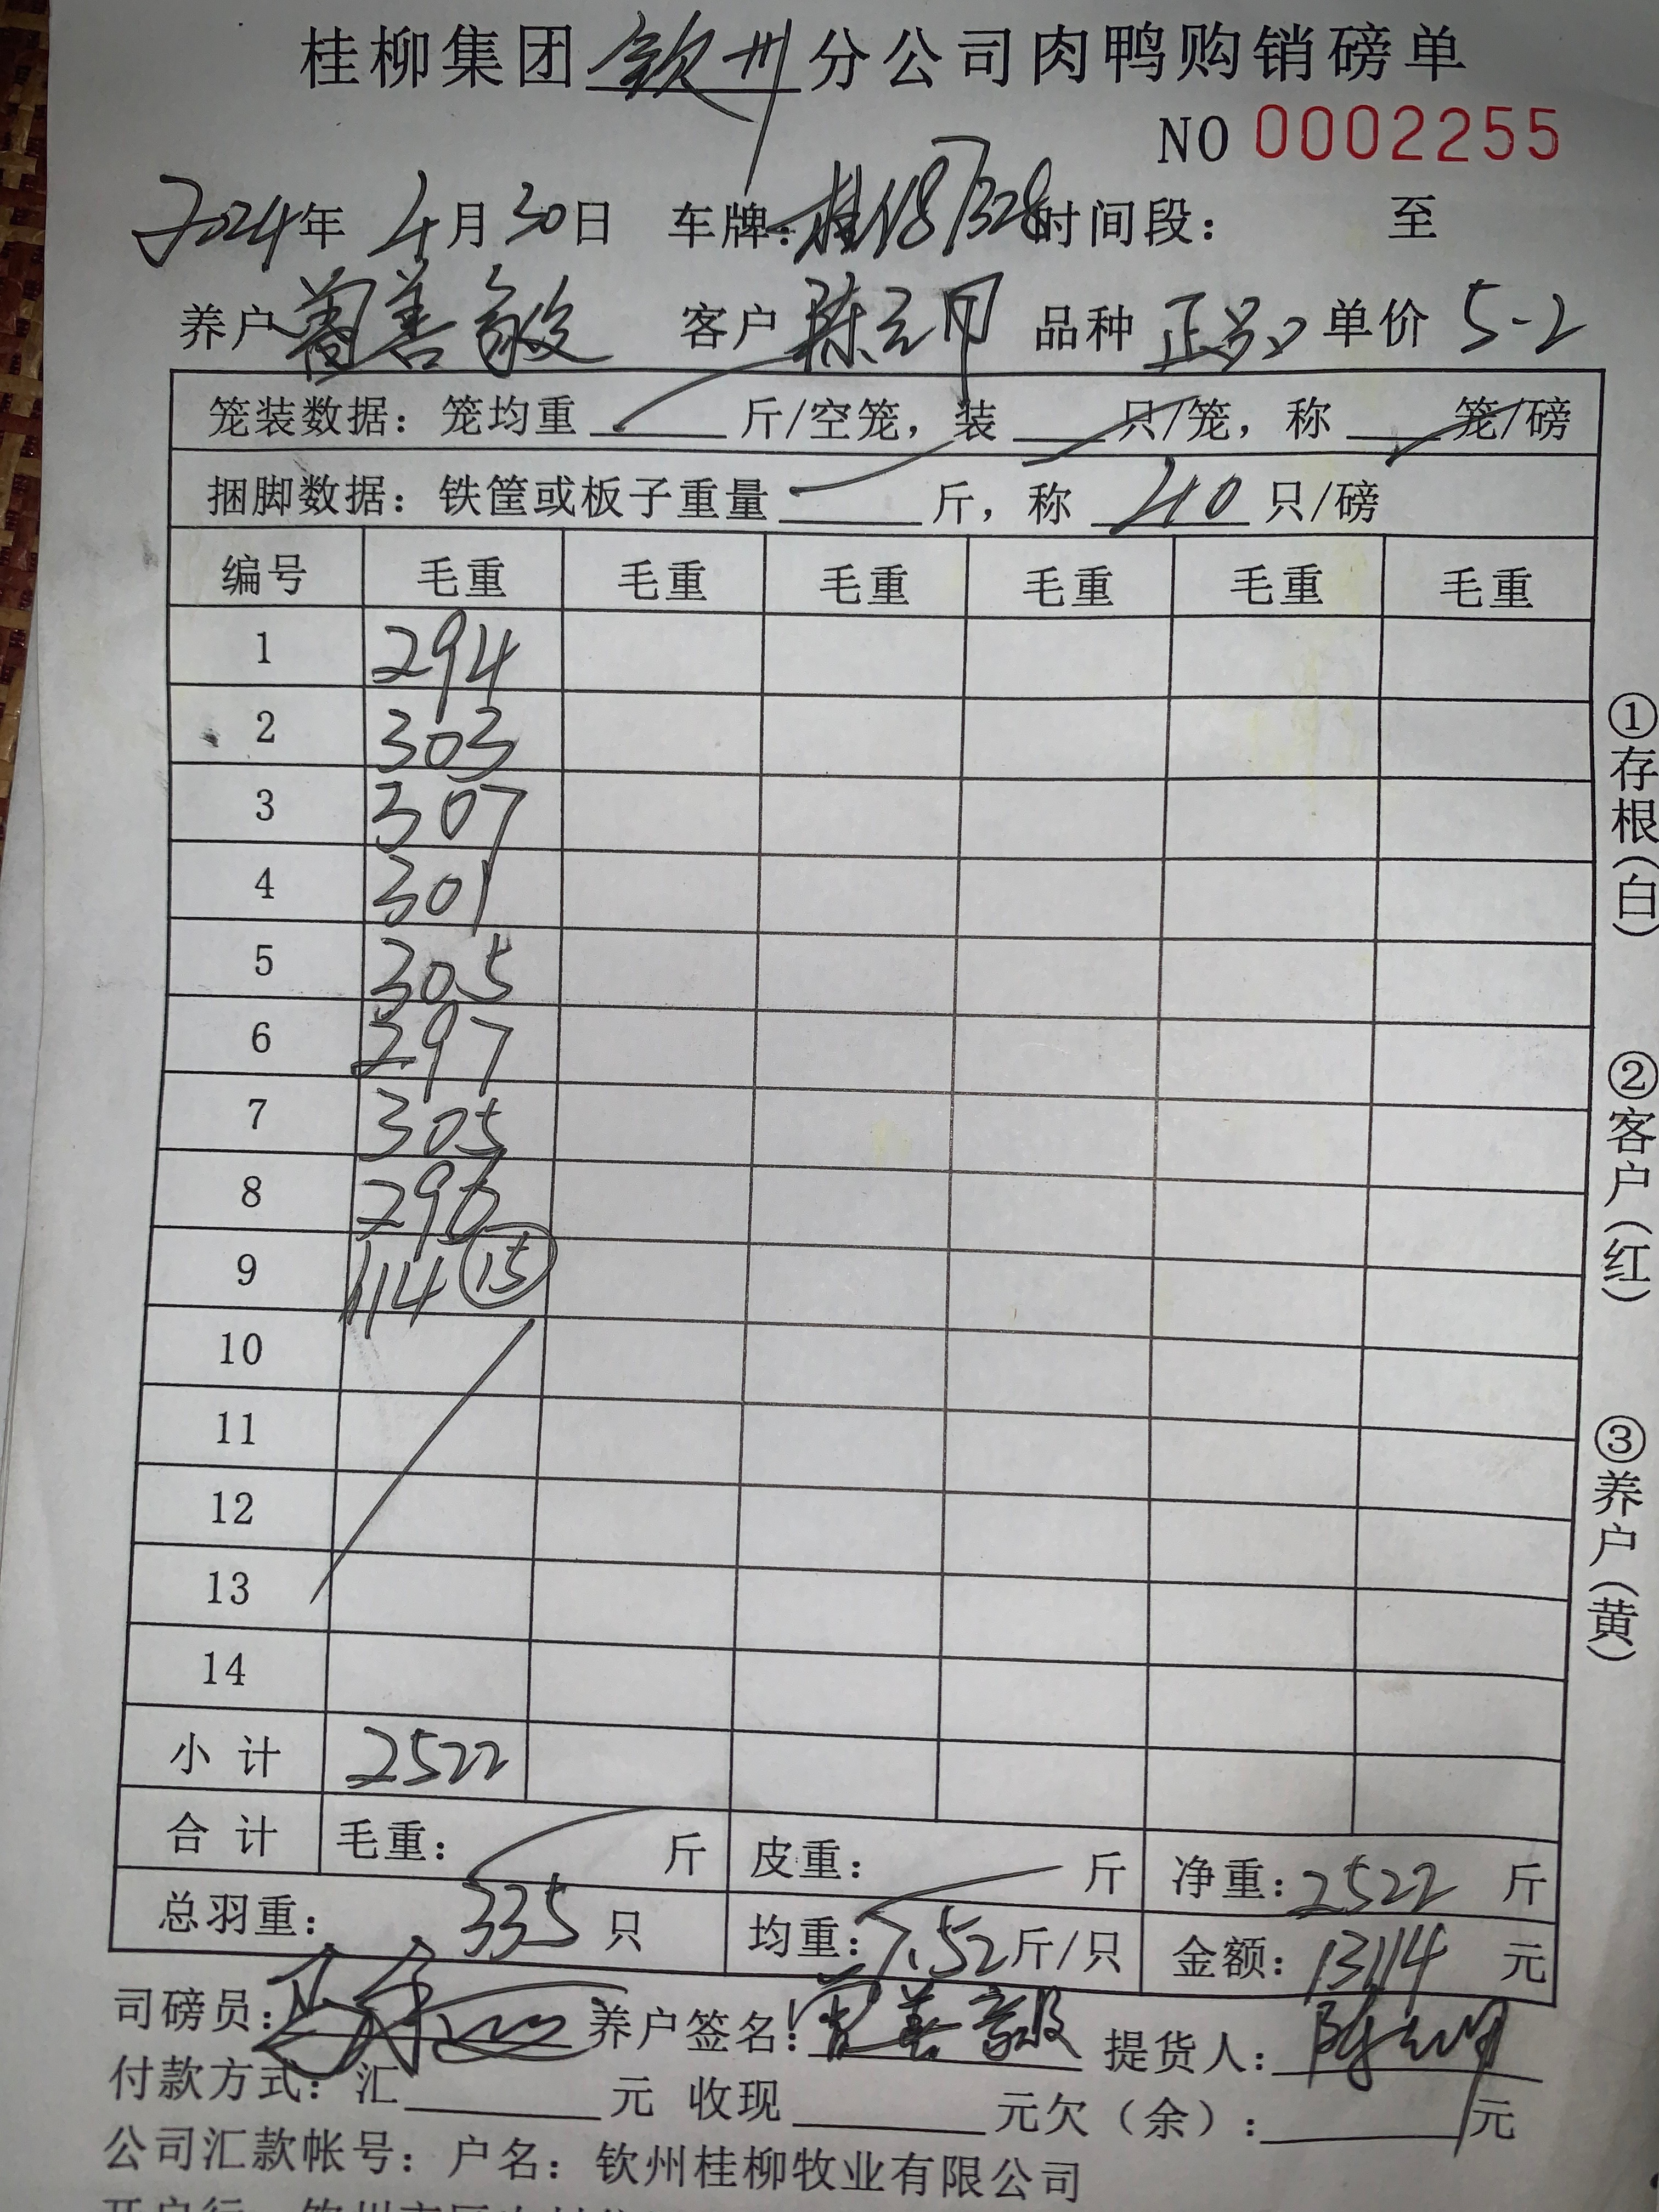 桂柳集团钦州分公司肉鸭购销磅单
NO 0002255
2024年 4月30日 车牌: 时间段: 至
养户 善 客户 陈 品种 正品 单价 5-2
笼装数据: 笼均重 斤/空笼, 装 只/笼, 称 笼/磅
捆脚数据: 铁筐或板子重量 斤, 称 40 只/磅
编号 毛重 毛重 毛重 毛重 毛重 毛重
1 294
2 303
3 307
4 301
5 305
6 297
7 305
8 296
9 114 ⑮
10
11
12
13
14
小计 2522
合计 毛重: 斤 皮重: 斤 净重: 2522 斤
总羽重: 335 只 均重: 7.52 斤/只 金额: 13114 元
司磅员: 养户签名: 提货人:
付款方式: 汇 元 收现 元欠(余): 元
公司汇款帐号: 户名: 钦州桂柳牧业有限公司
①存根(白)
②客户(红)
③养户(黄)